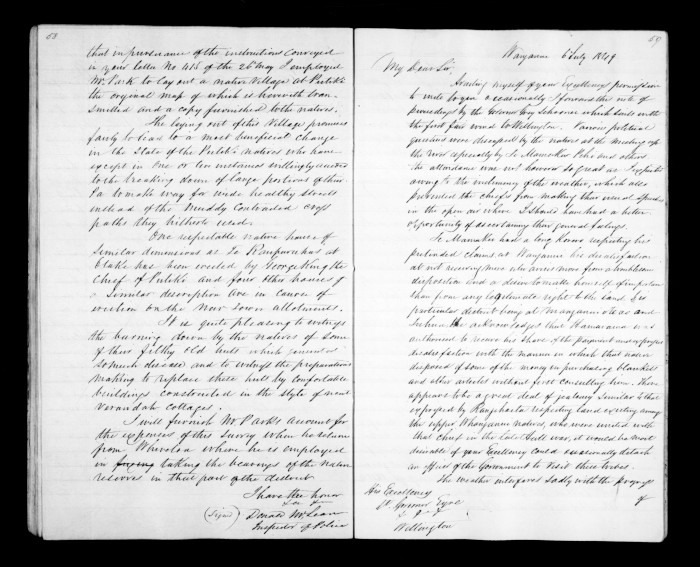 58
that in pursuance of the instructions conveyed
in your letter No 415 of the 26th May I employed
Mr Park to lay out a native Village at Putiki
the original map of which is herewith tran-
smitted and a copy furnished to the natives.
The laying out of this Village promises
fairly to lead to a most beneficial change
in the State of the Putiki natives who have
except in one or two instances willingly
to the breaking down of large portions of their
Pa to make way for wide healthy streets
instead of the muddy contracted cross
paths they hitherto used.
One respectable native house of
similar dimensions as Te Rauparahas at
Otaki has been erected by George King the
Chief of Putiki and four other houses of
a similar description are in course of
erection on the new Town allotments.
It is quite pleasing to witness
the burning down by the natives of some
of their filthy old huts which generated
so much disease and to witness the preparations
making to replace these huts by comfortable
buildings constructed in the style of neat
Verandah cottages.
I will furnish Mr Park's account for
the expenses of this survey when he returns
from Wherowa where he is employed
in taking the bearings of the native
reserves in that part of the district
I have the honor
(Signed) Donald McLean
Inspector of Police
59
Wanganui 6 July 1849
My Dear Sir,
Availing myself of your Excellency's permission
to write to you occasionally I forward the note of
proceedings by the Government Schooner which sails with
the first fair wind to Wellington. Various political
were by the natives at the meeting of
the most especially by Te Mamaku Pehi and others
The attendance was not however so great as I expected
owing to the inclemency of the weather, which also
prevented the chiefs from making their usual speeches
in the open air where I should have had a better
opportunity of ascertaining their general feelings.
Te Mamaku had a long korero respecting his
pretended claims at Wanganui his dissatisfaction
at not receiving more which arises more from a troublesome
disposition and a desire to make himself of importance
than from any legitimate right to the land, his
particular district being at and
he acknowledges that was
authorised to receive his share of the payment and expresses
dissatisfaction with the manner in which that native
disposed of some of the money in purchasing blankets
and other articles without first consulting him. There
appears to be a good deal of jealousy similar to that
expressed by Rangihaeata respecting land existing among
the upper Whanganui natives, who were united with
that Chief in the late Hutt war, it would be most
desirable if your Excellency could occasionally detach
an officer of the Government to visit these tribes.
The weather interferes sadly with the progress
of
His Excellency
Lt Governor Eyre
Wellington